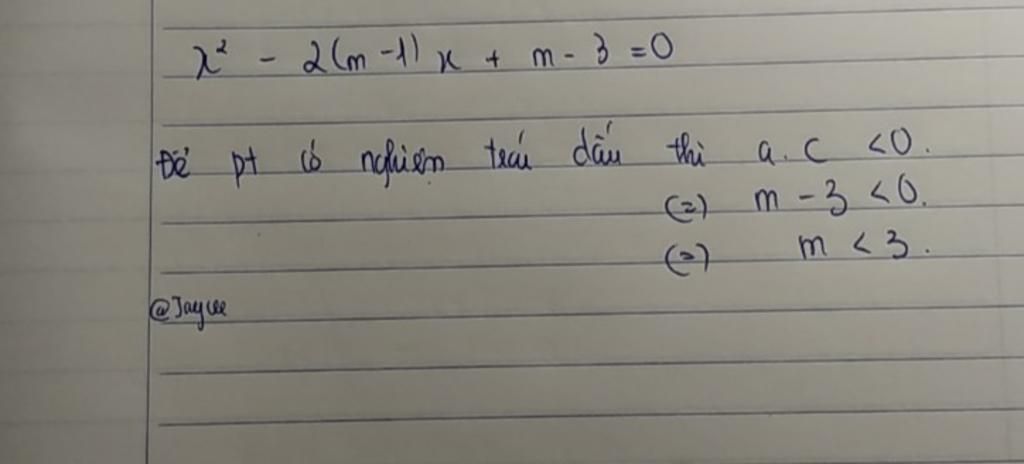 x² - 2(m-1)x + m - 3 = 0
Để pt có nghiệm trái dấu thì a.c <0.
(=) m - 3 <0.
(=) m < 3.
@Jaycee